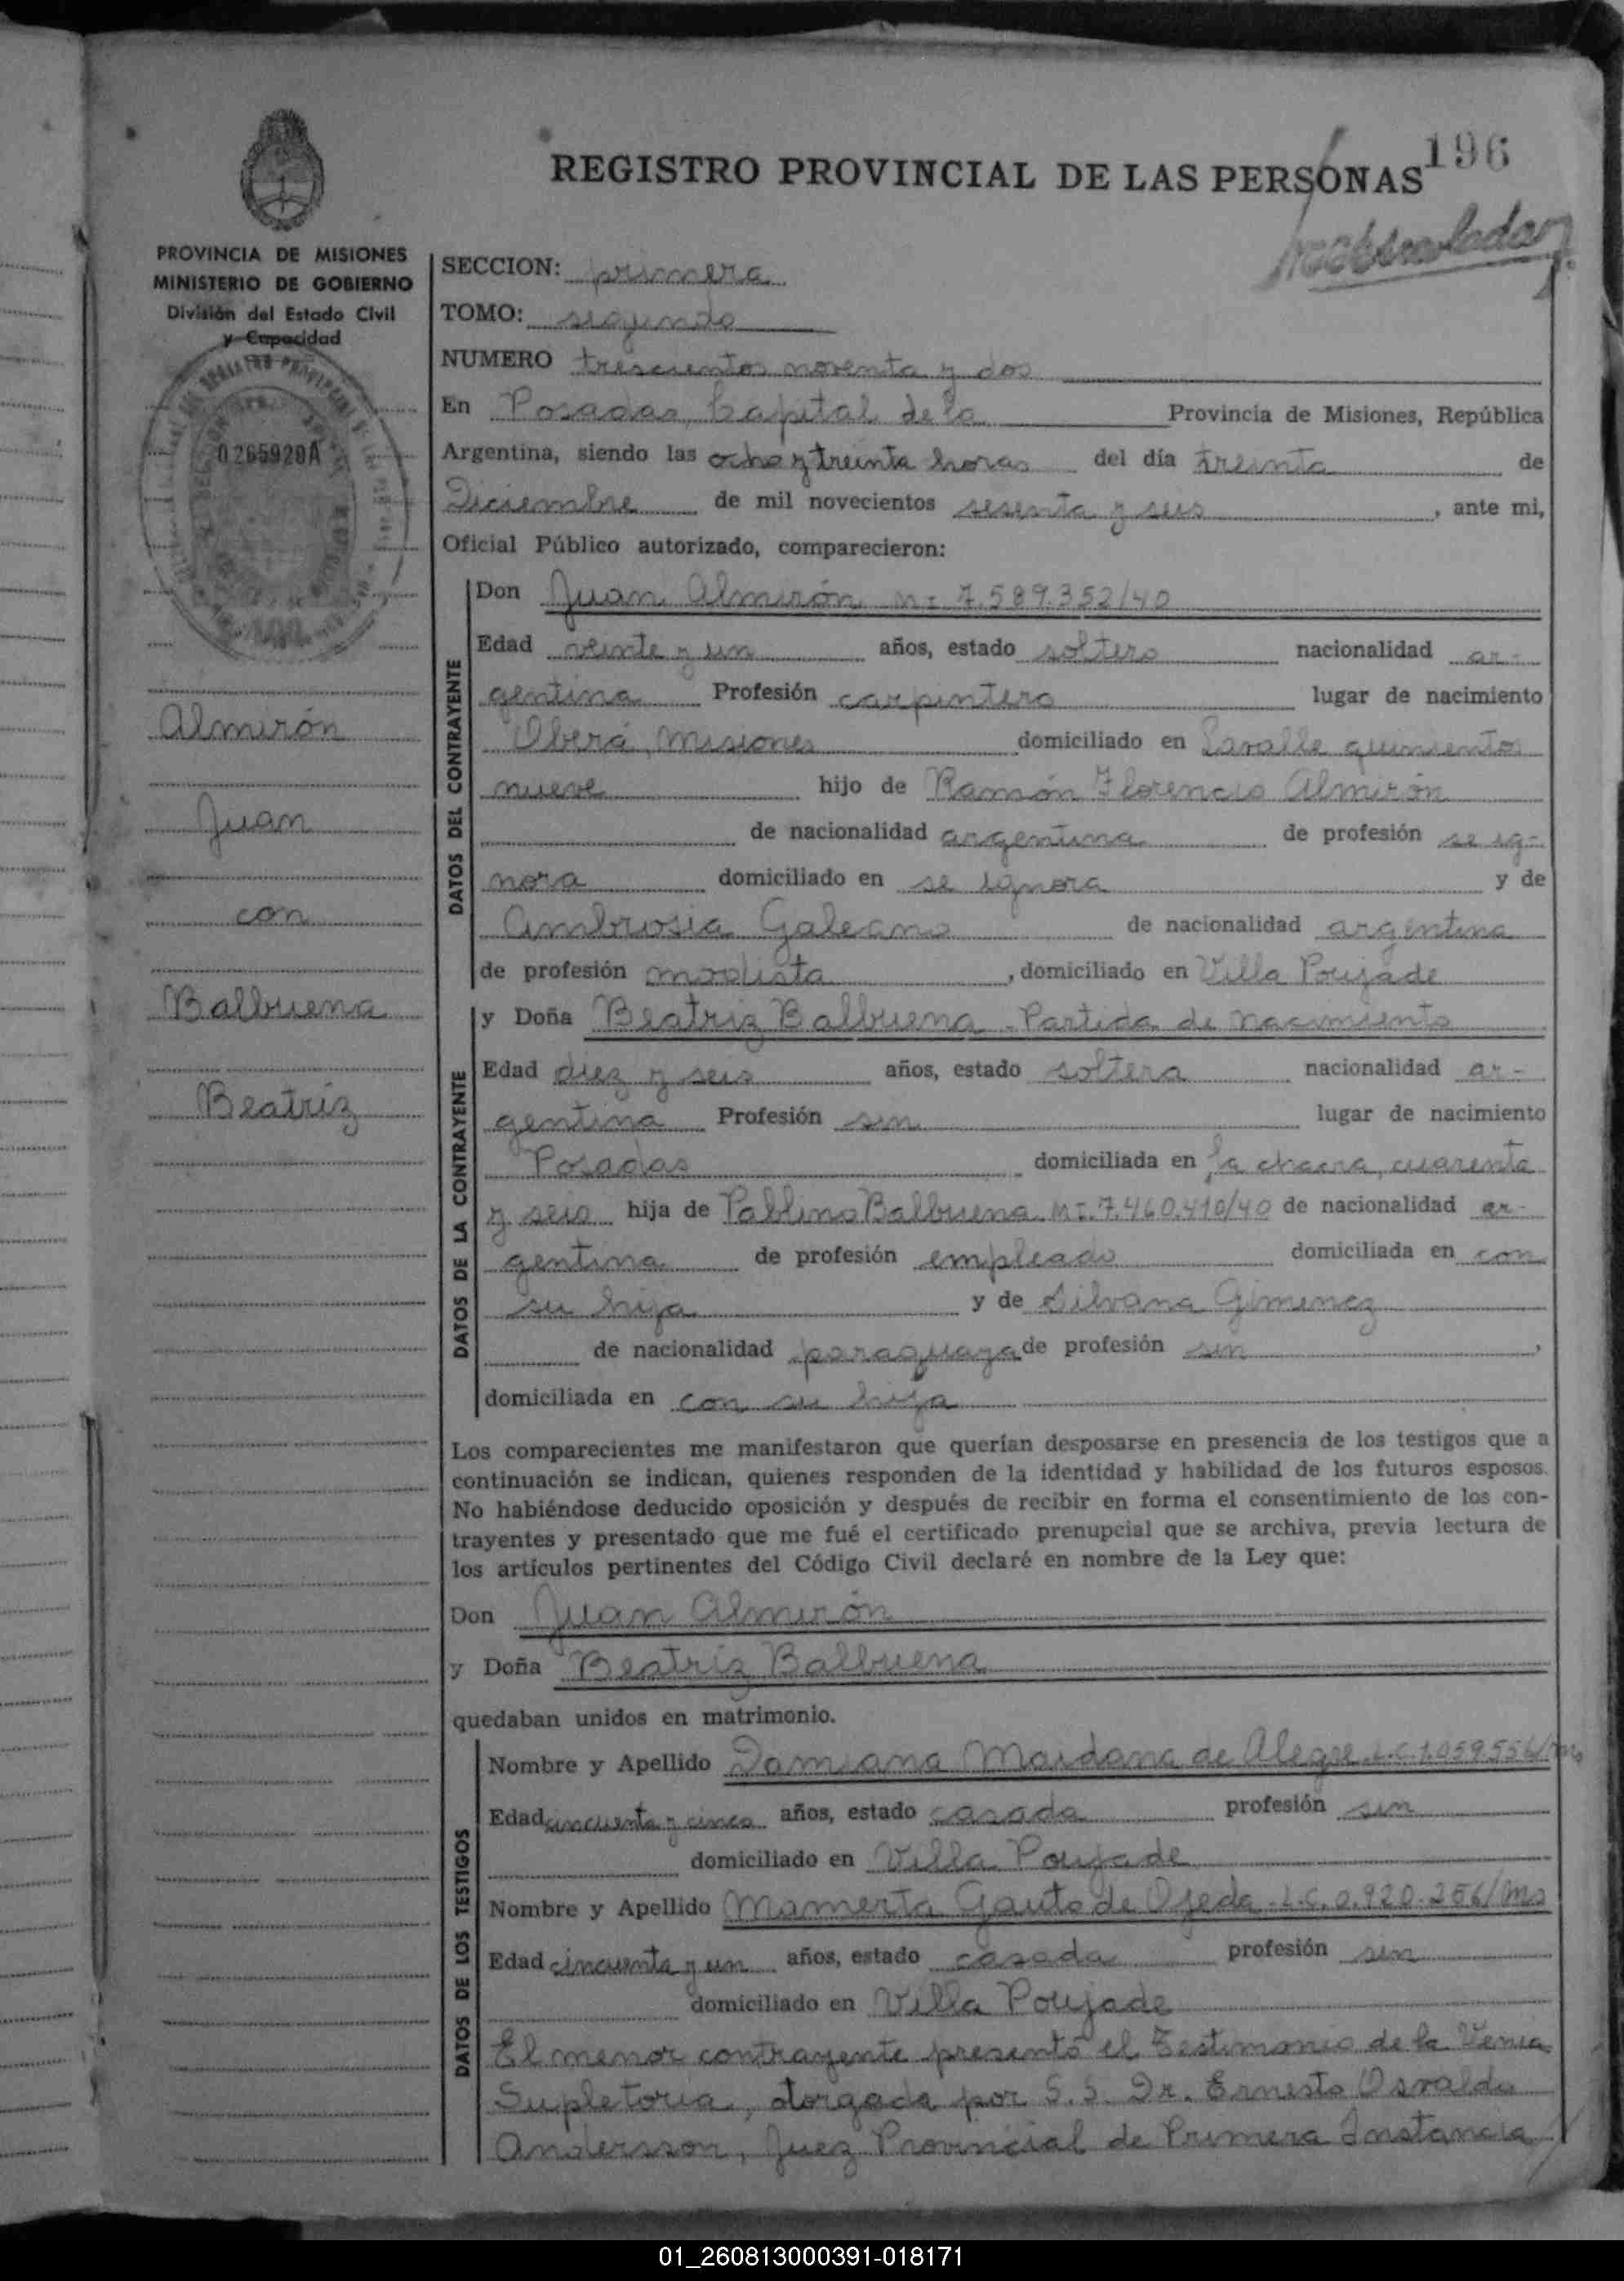 196
REGISTRO PROVINCIAL DE LAS PERSONAS
PROVINCIA DE MISIONES
MINISTERIO DE GOBIERNO
División del Estado Civil
y Capacidad
0265920A
Almirón
Juan
con
Balbuena
Beatriz
SECCION: primera
TOMO: segundo
NUMERO trescientos noventa y dos
En Posadas, Capital de la Provincia de Misiones, República
Argentina, siendo las ocho y treinta horas del día treinta de
Diciembre de mil novecientos sesenta y seis, ante mi,
Oficial Público autorizado, comparecieron:
DATOS DEL CONTRAYENTE
Don Juan Almirón M.I. 7.589.352/40
Edad veinte y un años, estado soltero nacionalidad ar-
gentina Profesión carpintero lugar de nacimiento
Oberá, Misiones domiciliado en Lavalle quinientos
nueve hijo de Ramón Florencio Almirón
de nacionalidad argentina de profesión se ig-
nora domiciliado en se ignora y de
Ambrosia Galeano de nacionalidad argentina
de profesión modista, domiciliado en Villa Poujade
DATOS DE LA CONTRAYENTE
y Doña Beatriz Balbuena - Partida de nacimiento
Edad diez y seis años, estado soltera nacionalidad ar-
gentina Profesión sin lugar de nacimiento
Posadas domiciliada en la chacra, cuarenta
y seis hija de Pablino Balbuena M.I. 7.460.410/40 de nacionalidad ar-
gentina de profesión empleado domiciliada en con
su hija y de Silvana Gimenez
de nacionalidad paraguaya de profesión sin,
domiciliada en con su hija
Los comparecientes me manifestaron que querían desposarse en presencia de los testigos que a
continuación se indican, quienes responden de la identidad y habilidad de los futuros esposos.
No habiéndose deducido oposición y después de recibir en forma el consentimiento de los con-
trayentes y presentado que me fué el certificado prenupcial que se archiva, previa lectura de
los artículos pertinentes del Código Civil declaré en nombre de la Ley que:
Don Juan Almirón
y Doña Beatriz Balbuena
quedaban unidos en matrimonio.
DATOS DE LOS TESTIGOS
Nombre y Apellido Damiana Maidana de Alegre L.C. 1.059.556/Ms
Edad cincuenta y cinco años, estado casada profesión sin
domiciliado en Villa Poujade
Nombre y Apellido Mamerta Gauto de Ojeda - L.C. 0.920.256/Ms
Edad cincuenta y un años, estado casada profesión sin
domiciliado en Villa Poujade
El menor contrayente presentó el Testimonio de la Venia
Supletoria, otorgada por S.S. Dr. Ernesto Osvaldo
Andersson, Juez Provincial de Primera Instancia
01_260813000391-018171